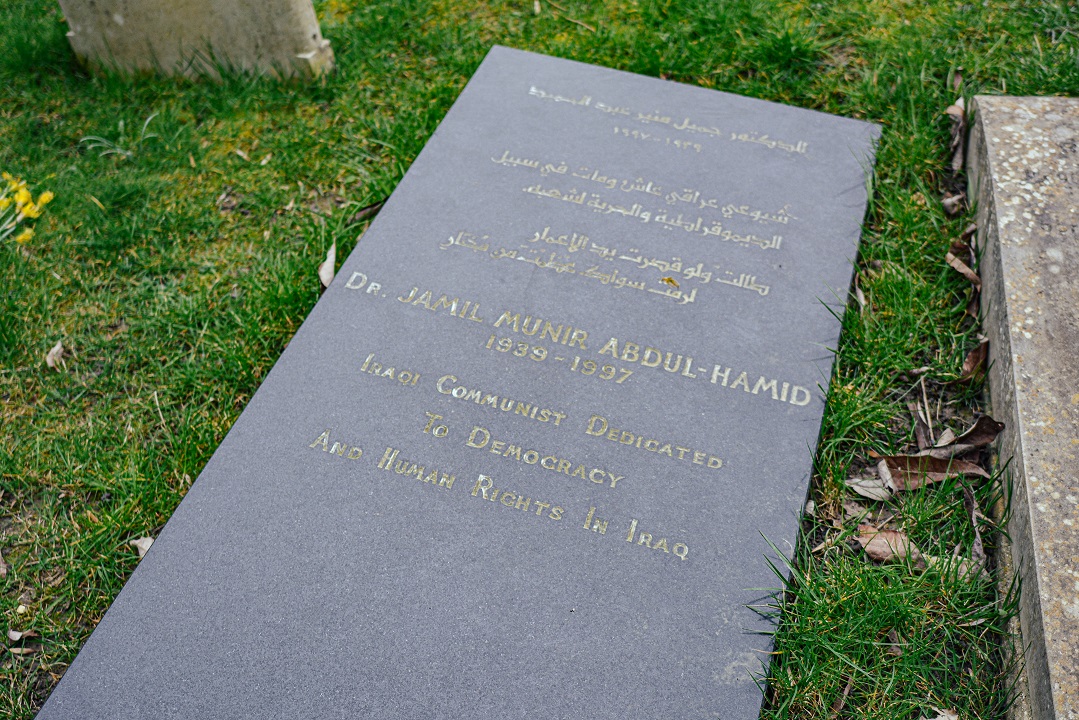 الدكتور جميل منير عبد الحميد
١٩٣٩-١٩٩٧
شيوعي عراقي عاش ومات في سبيل
الديموقراطية والحرية لشعبه
طالت ولو قصرت يد الأعمار
لرمت سواك عظمت من مختار
DR. JAMIL MUNIR ABDUL-HAMID
1939-1997
IRAQI COMMUNIST DEDICATED
TO DEMOCRACY
AND HUMAN RIGHTS IN IRAQ